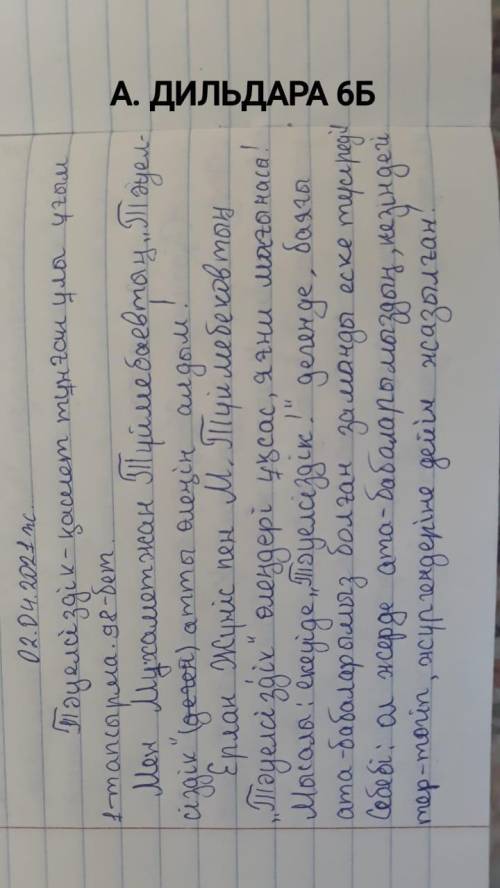 А. ДИЛЬДАРА 6Б
02.04.2021ж
Тәуелсіздік - қасиет тұнған ұлы ұғым
1-тапсырма. 98-бет.
Мен Мұхаметжан Түймебаевтың „Тәуел-
сіздік" (деген) атты өлеңін алдым!
Ерлан Жүніс пен М. Түймебековтоң
„Тәуелсіздік" өлеңдері ұқсас, яғни мағынасы!
Мысалы: екеуіде „Тәуелсіздік!" дегенде, баяғы
ата-бабаларымыз болған заманды еске түсіреді!
Себебі: ол жерде ата-бабаларымыздың, кезіндегі
тер-төгіп, жүргендеріне дейін жазылған!